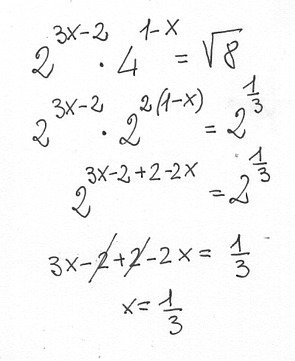 2^{3x-2} · 4^{1-x} = √8
2^{3x-2} · 2^{2(1-x)} = 2^{1/3}
2^{3x-2+2-2x} = 2^{1/3}
3x-2+2-2x = 1/3
x = 1/3